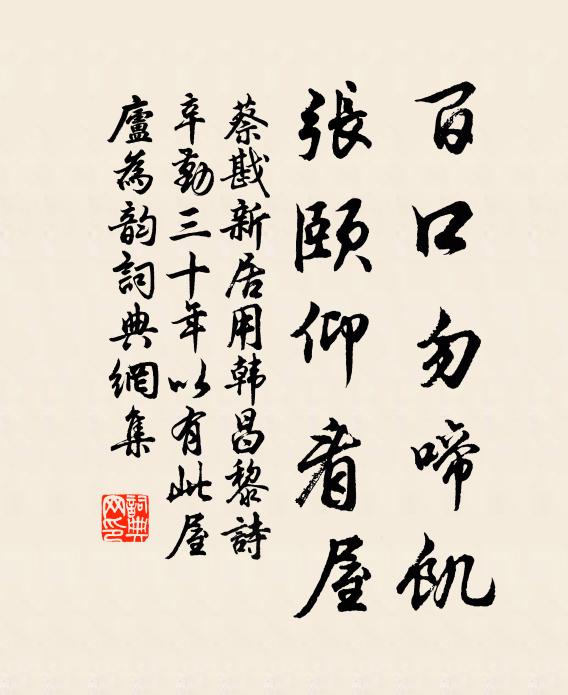 百口勿啼飢
張頤仰看屋
蔡戡新居用韩昌黎詩
辛勤三十年以有此屋
廬為韵詞典網集
詞典網印